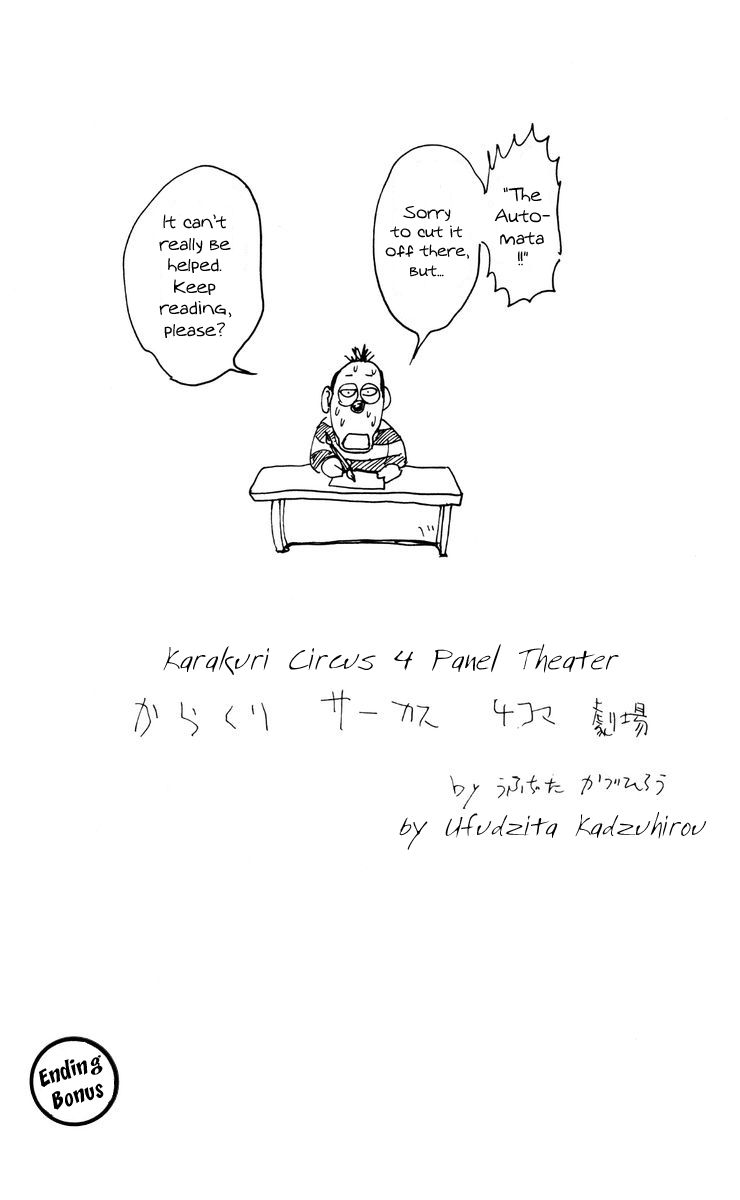 "The
Auto-
mata
!!"
Sorry
to cut it
off there,
But...
It can't
really Be
helped.
Keep
reading,
please?
Karakuri Circus 4 Panel Theater
からくり サーカス 4コマ 劇場
by うふぢた かづひろう
by Ufudzita Kadzuhirou
Ending
Bonus